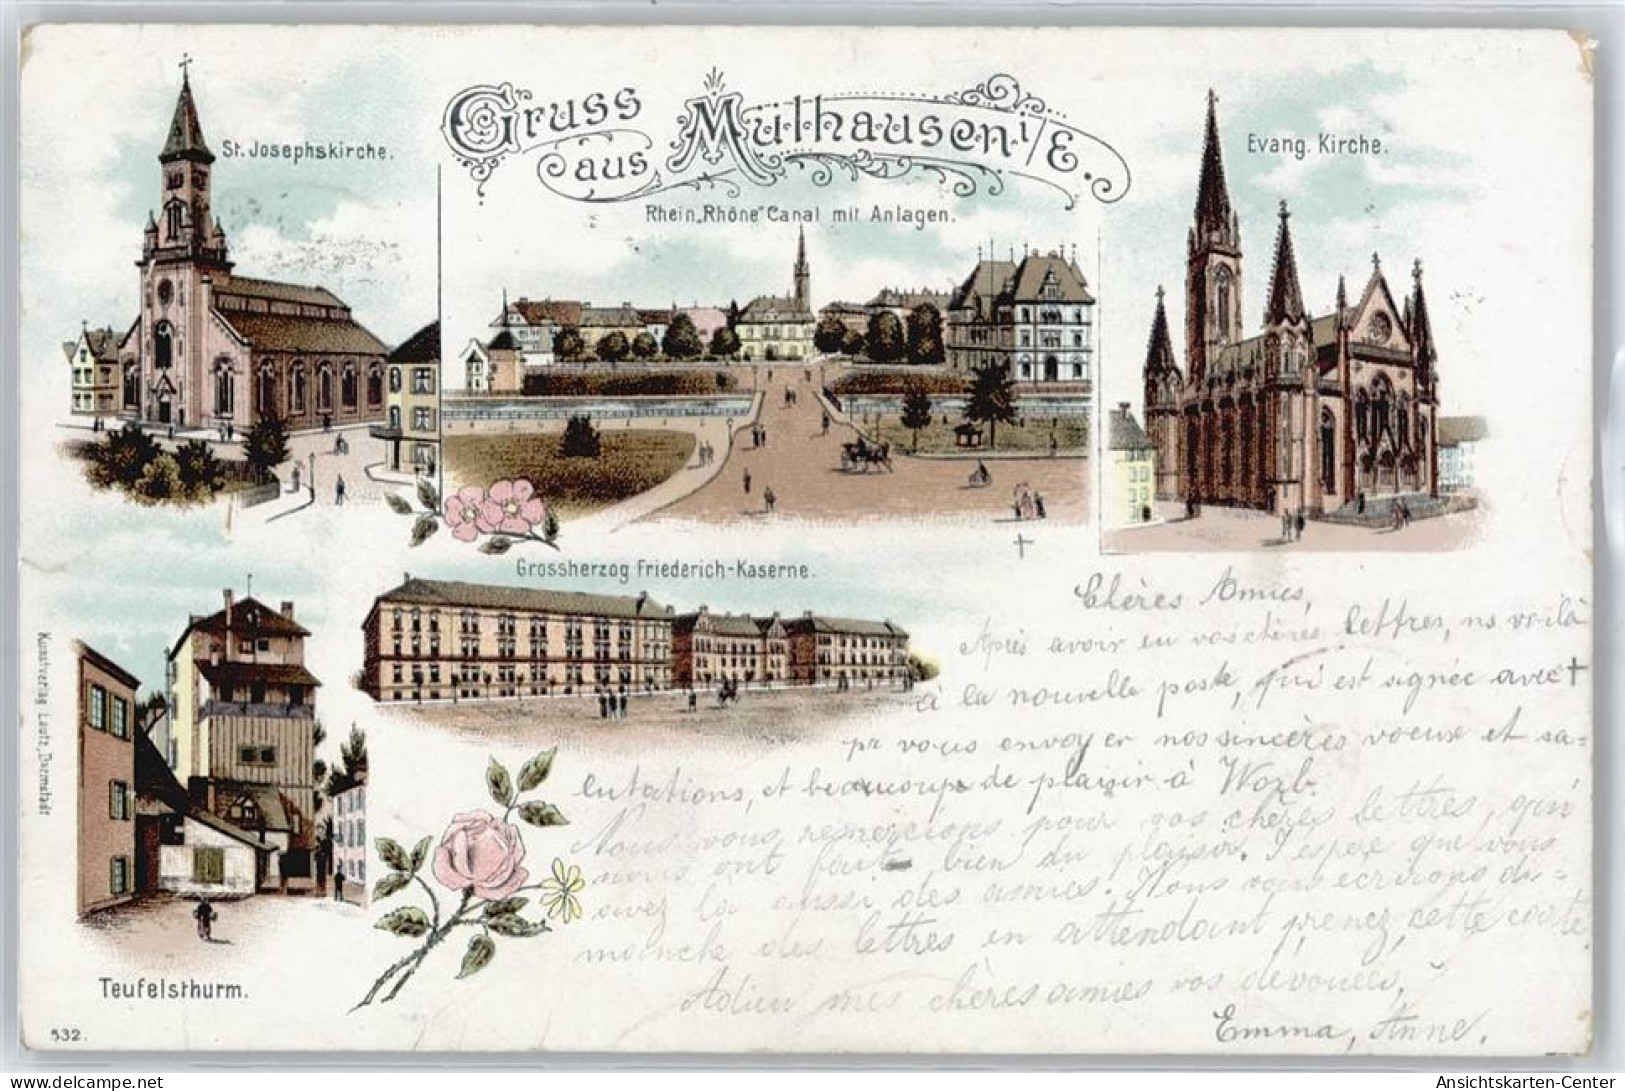 Gruss
aus Mülhausen i/E.
St. Josephskirche.
Rhein „Rhône“ Canal mit Anlagen.
Evang. Kirche.
Grossherzog Friederich-Kaserne.
Teufelsthurm.
Kunstverlag Lautz, Darmstadt
532.
†
Chères Amies,
Après avoir eu vos chères lettres, ns voilà
à la nouvelle poste, qui est signée avec †
pr vous envoyer nos sincères voeux et sa=
lutations, et beaucoup de plaisir à Worb.
Nous vous remercions pour vos chères lettres, qui
nous ont fait bien du plaisir. J'espère que vous
avez là aussi des amies. Nous vous écrirons di=
manche des lettres en attendant prenez cette carte
Adieu mes chères amies vos dévouées,
Emma, Anne.
www.ansichtskarten-center.de
Ansichtskarten-Center